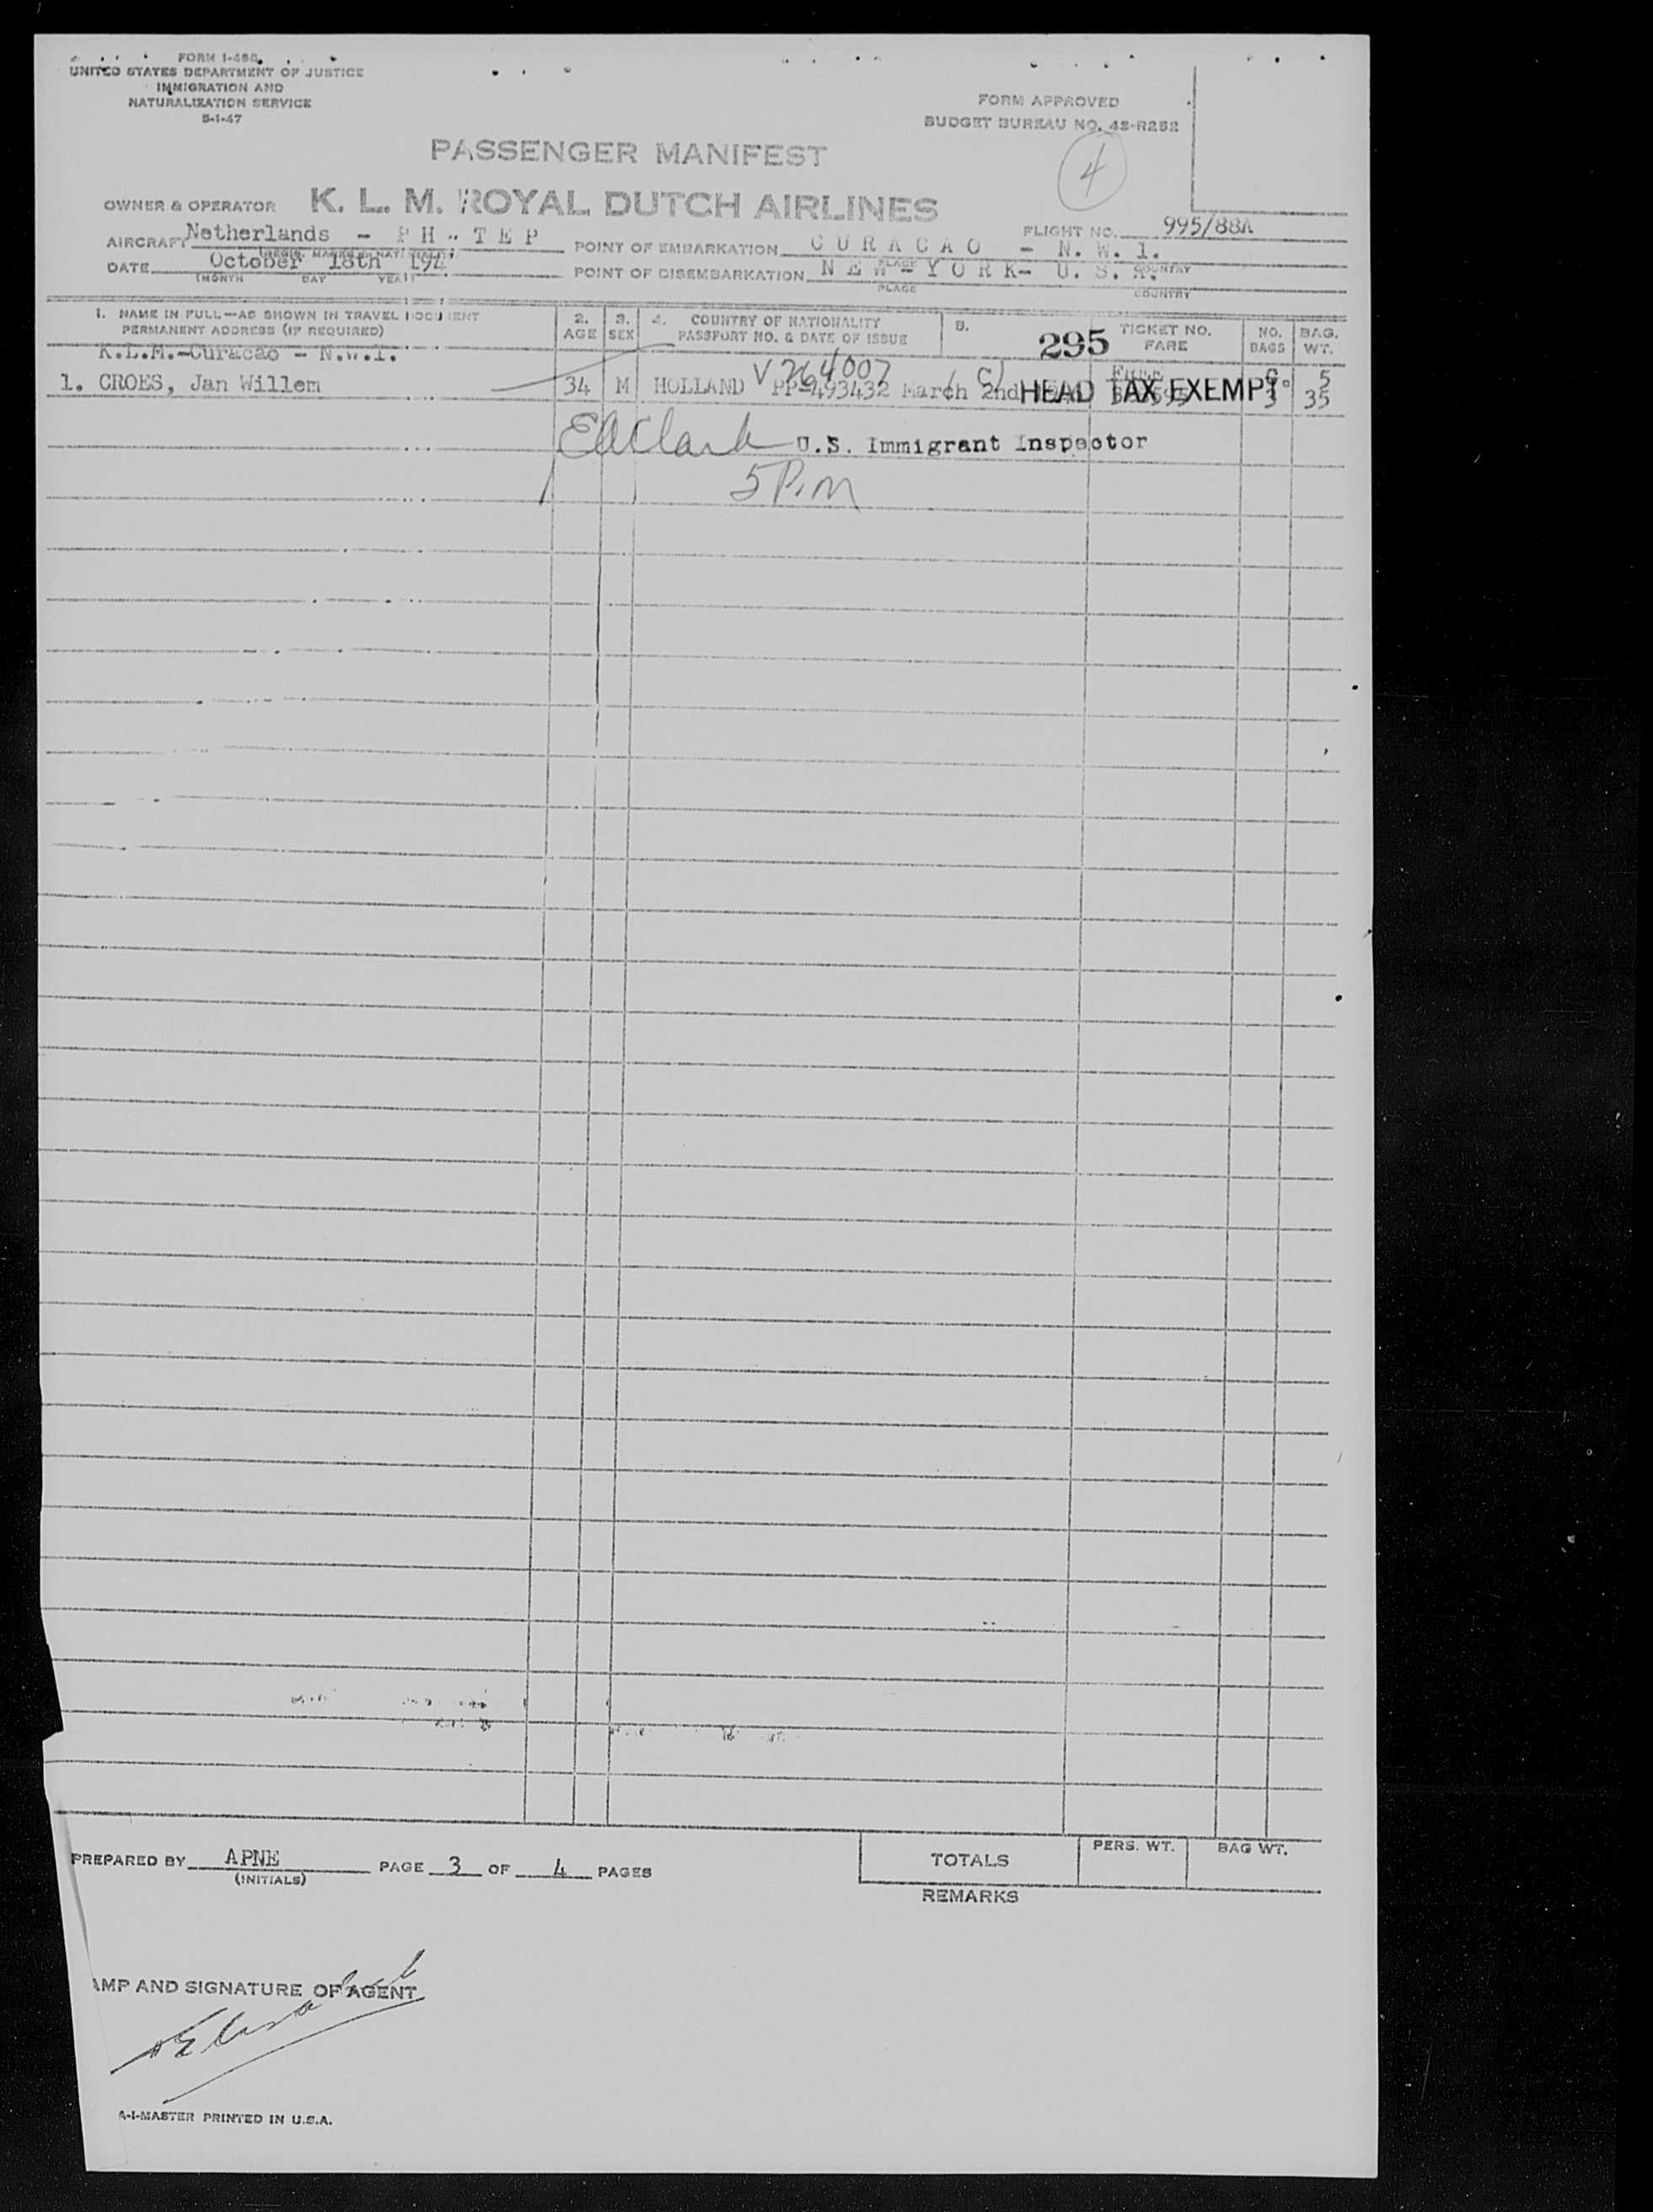 FORM I-466
UNITED STATES DEPARTMENT OF JUSTICE
IMMIGRATION AND
NATURALIZATION SERVICE
5-1-47
FORM APPROVED
BUDGET BUREAU NO. 43-R252
4
PASSENGER MANIFEST
OWNER & OPERATOR K. L. M. ROYAL DUTCH AIRLINES
FLIGHT NO. 995/88A
AIRCRAFT Netherlands - PH-TEP POINT OF EMBARKATION CURACAO - N. W. I.
PLACE COUNTRY
DATE October 18th 194 POINT OF DISEMBARKATION NEW-YORK- U. S. A.
(MONTH DAY YEAR) PLACE COUNTRY
1. NAME IN FULL—AS SHOWN IN TRAVEL DOCUMENT 2. 3. 4. COUNTRY OF NATIONALITY 5. TICKET NO. NO. BAG.
PERMANENT ADDRESS (IF REQUIRED) AGE SEX PASSPORT NO. & DATE OF ISSUE 295 FARE BAGS WT.
K.L.M.-Curacao - N.W.I. V264007 FREE 5
1. CROES, Jan Willem 34 M HOLLAND PP-493432 March 2nd HEAD TAX EXEMPT 3 35
EAClark U.S. Immigrant Inspector
5 P.M
PREPARED BY APNE PAGE 3 OF 4 PAGES
(INITIALS)
TOTALS PERS. WT. BAG WT.
REMARKS
AMP AND SIGNATURE OF AGENT
A-I-MASTER PRINTED IN U.S.A.